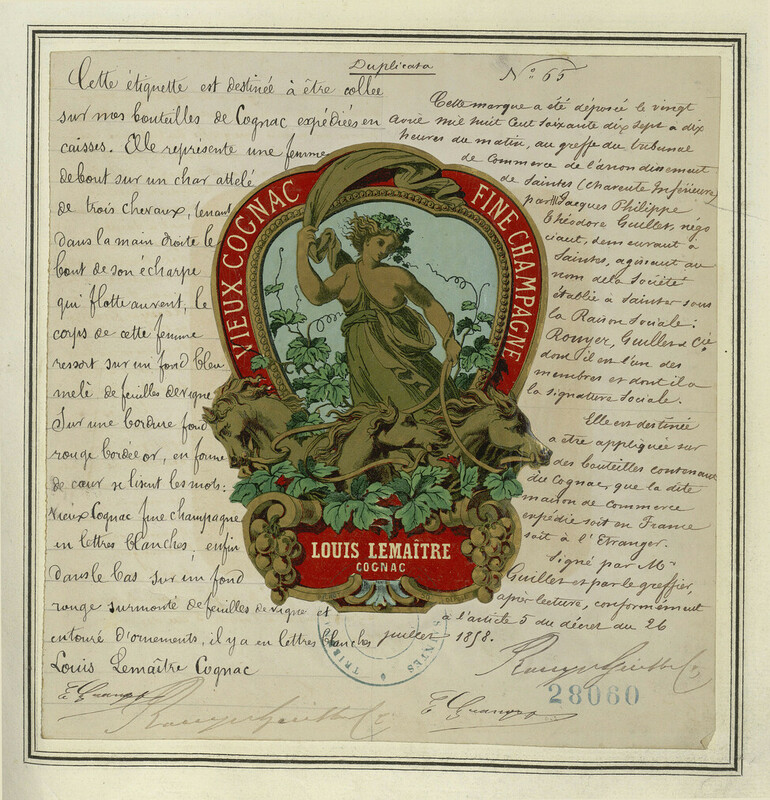 Duplicata
N° 65
Cette étiquette est destinée à être collée
sur nos bouteilles de Cognac expédiées en
caisses. Elle représente une femme
debout sur un char attelé
de trois chevaux, tenant
dans la main droite le
bout de son écharpe
qui flotte au vent, le
corps de cette femme
ressort sur un fond bleu
mêlé de feuilles de vigne
Sur une bordure fond
rouge bordée or, en forme
de cœur se lisent les mots:
Vieux Cognac fine champagne
en lettres blanches; enfin
dans le bas sur un fond
rouge surmonté de feuilles de vigne et
entouré d'ornements, il y a en lettres blanches
Louis Lemaître Cognac
VIEUX COGNAC
FINE CHAMPAGNE
LOUIS LEMAÎTRE
COGNAC
Cette marque a été déposée le vingt
avril mil huit cent soixante dix sept à dix
heures du matin, au greffe du tribunal
de Commerce de l'arrondissement
de Saintes (Charente Inférieure)
par M Jacques Philippe
Théodore Guillet, négo
ciant, demeurant à
Saintes, agissant au
nom de la Société
établie à Saintes sous
la Raison Sociale:
Rouyer, Guillet & Cie
dont il est l'un des
membres et dont il a
la signature sociale.
Elle est destinée
à être appliquée sur
des bouteilles contenant
du Cognac que la dite
maison de Commerce
expédie soit en France
soit à l'Etranger.
Signé par Mr
Guillet et par le greffier,
après lecture, conformément
à l'article 5 du décret du 26
juillet 1858.
Rouyer Guillet & Cie
28060
Rouyer Guillet & Cie